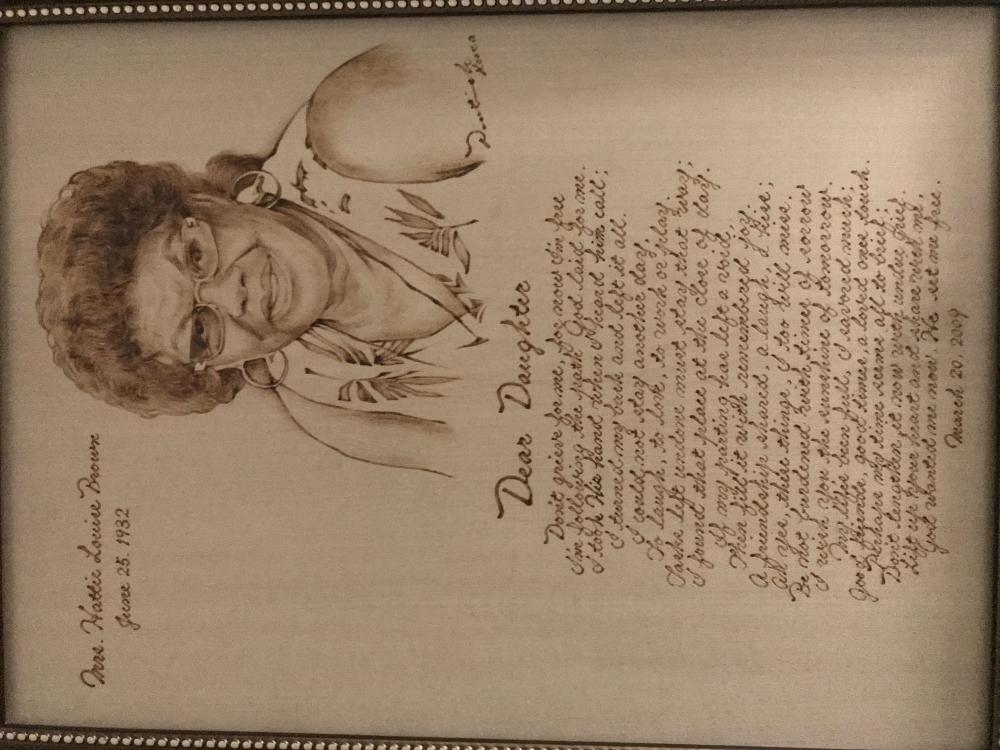 Mrs. Hattie Louise Brown
June 25. 1932
Dear Daughter
Don't grieve for me, for now I'm free
I'm following the path God laid for me.
I took His hand when I heard him call;
I turned my back and left it all.
I could not stay another day,
To laugh, to look, to work or play.
Tasks left undone must stay that way;
I found that place at the close of day.
If my parting has left a void,
Then fill it with remembered joy.
A friendship shared, a laugh, a kiss;
Ah yes, these things, I too will miss.
Be not burdend with times of sorrow
I wish you the sunshine of tomorrow.
My life's been full, I savored much;
Good friends, good times, a loved ones touch.
Perhaps my time seems all to brief.
Don't lengthen it now with undue grief.
Lift up your heart and share with me,
God wanted me now, He set me free.
March 20, 2009